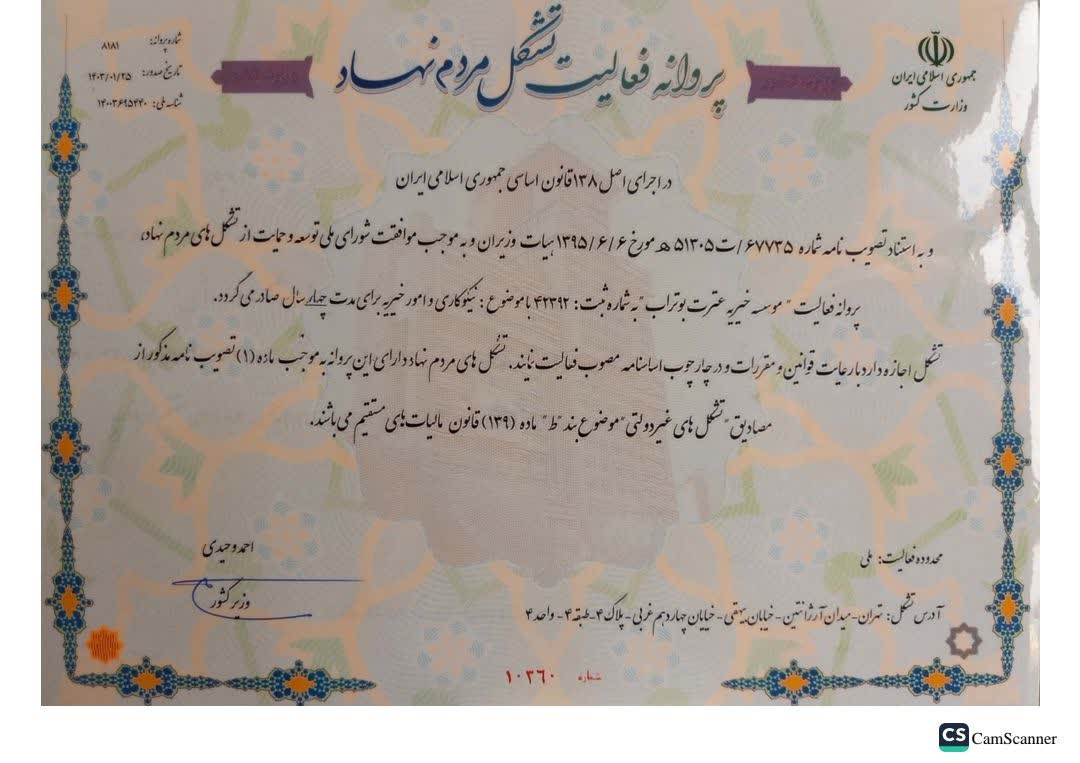 جمهوری اسلامی ایران
وزارت کشور
پروانه فعالیت تشکل مردم نهاد
شماره پروانه: ۸۱۸۱
تاریخ صدور: ۱۴۰۳/۰۱/۲۵
شناسه ملی: ۱۴۰۰۳۶۹۵۴۴۰
در اجرای اصل ۱۳۸ قانون اساسی جمهوری اسلامی ایران
و به استناد تصویب نامه شماره ۶۷۷۳۵/ت۵۱۳۰۵ هـ مورخ ۱۳۹۵/۶/۶ هیات وزیران و به موجب موافقت شورای ملی توسعه و حمایت از تشکل های مردم نهاد،
پروانه فعالیت " موسسه خیریه عترت بوتراب " به شماره ثبت: ۴۲۳۹۲ با موضوع: نیکوکاری و امور خیریه برای مدت چهار سال صادر می گردد.
تشکل اجازه دارد با رعایت قوانین و مقررات و در چارچوب اساسنامه مصوب فعالیت نمایند. تشکل های مردم نهاد دارای این پروانه به موجب ماده (۱) تصویب نامه مذکور از
مصادیق "تشکل های غیردولتی" موضوع بند "ط" ماده (۱۳۹) قانون مالیات های مستقیم می باشند.
احمد وحیدی
وزیر کشور
محدوده فعالیت: ملی
آدرس تشکل: تهران-میدان آرژانتین- خیابان بیهقی- خیابان چهاردهم غربی- پلاک ۴-طبقه ۴- واحد ۴
شماره ۱۰۳۶۰
CS CamScanner